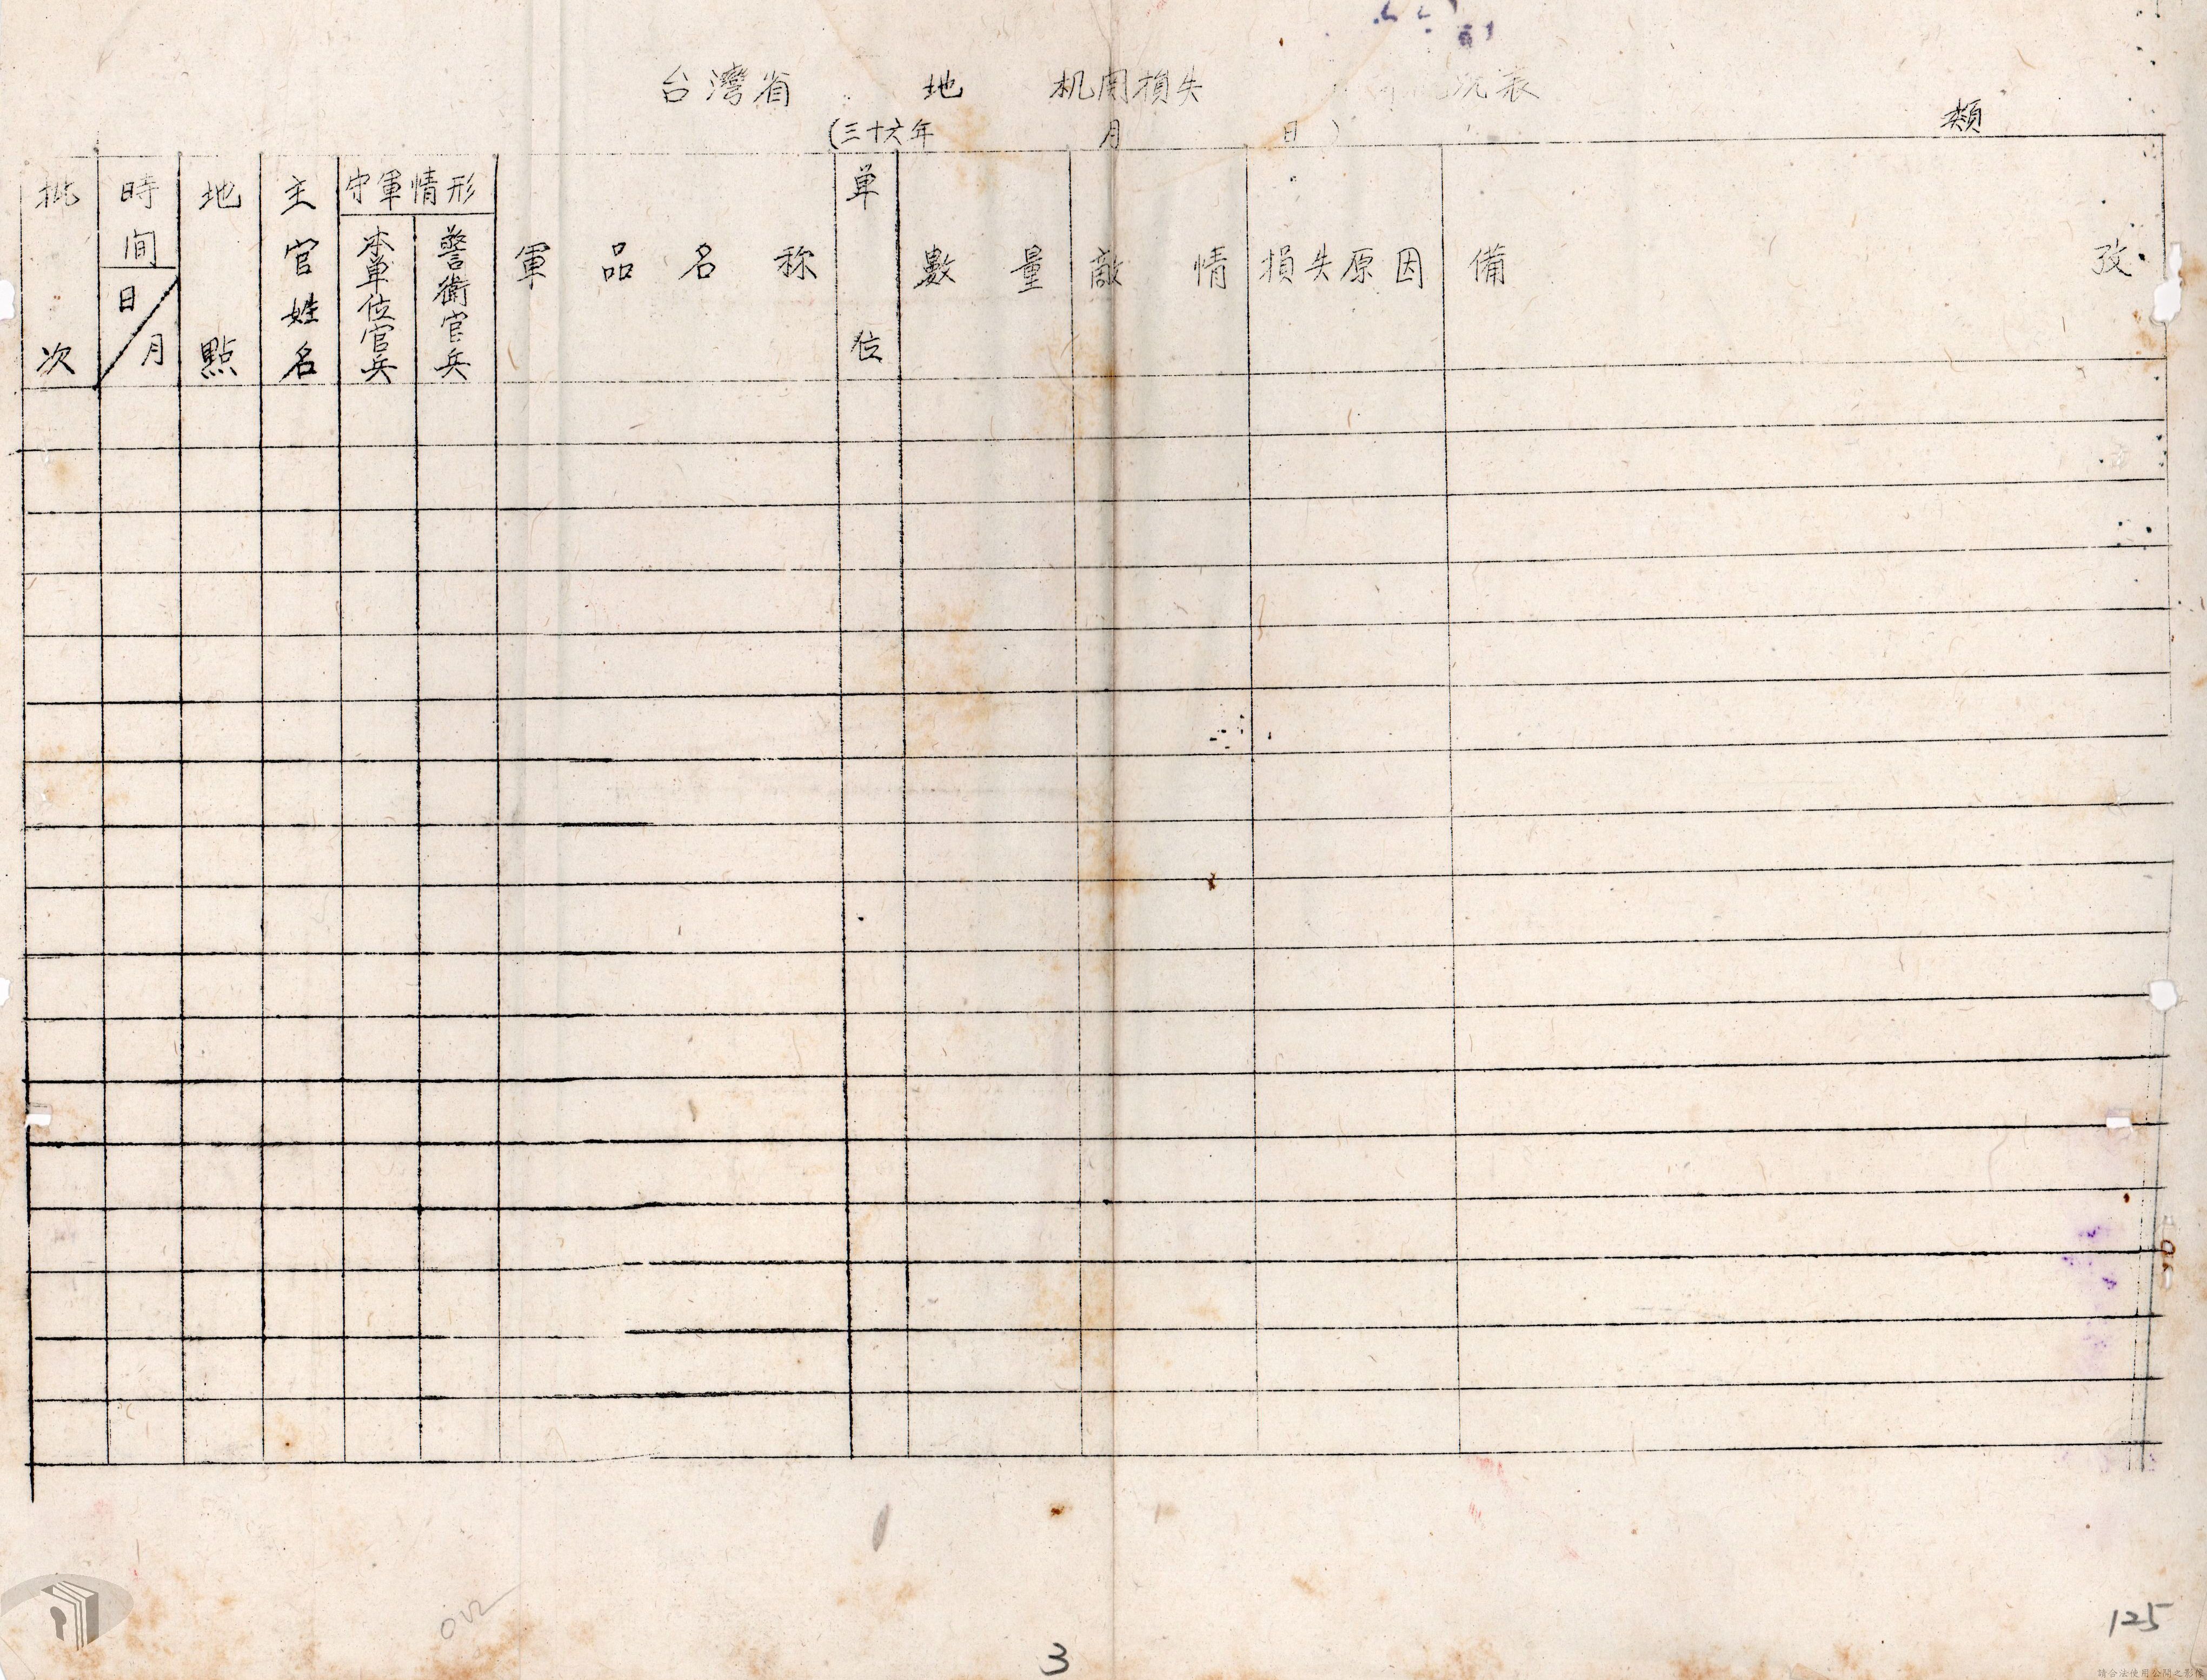 台灣省 地 机関損失 況表
(三十六年 月 日)
類
批次
時間
日/月
地點
主官姓名
守軍情形
本單位官兵
警衛官兵
軍品名称
単位
數量
敵情
損失原因
備攷
125
3
請合法使用公開之影像